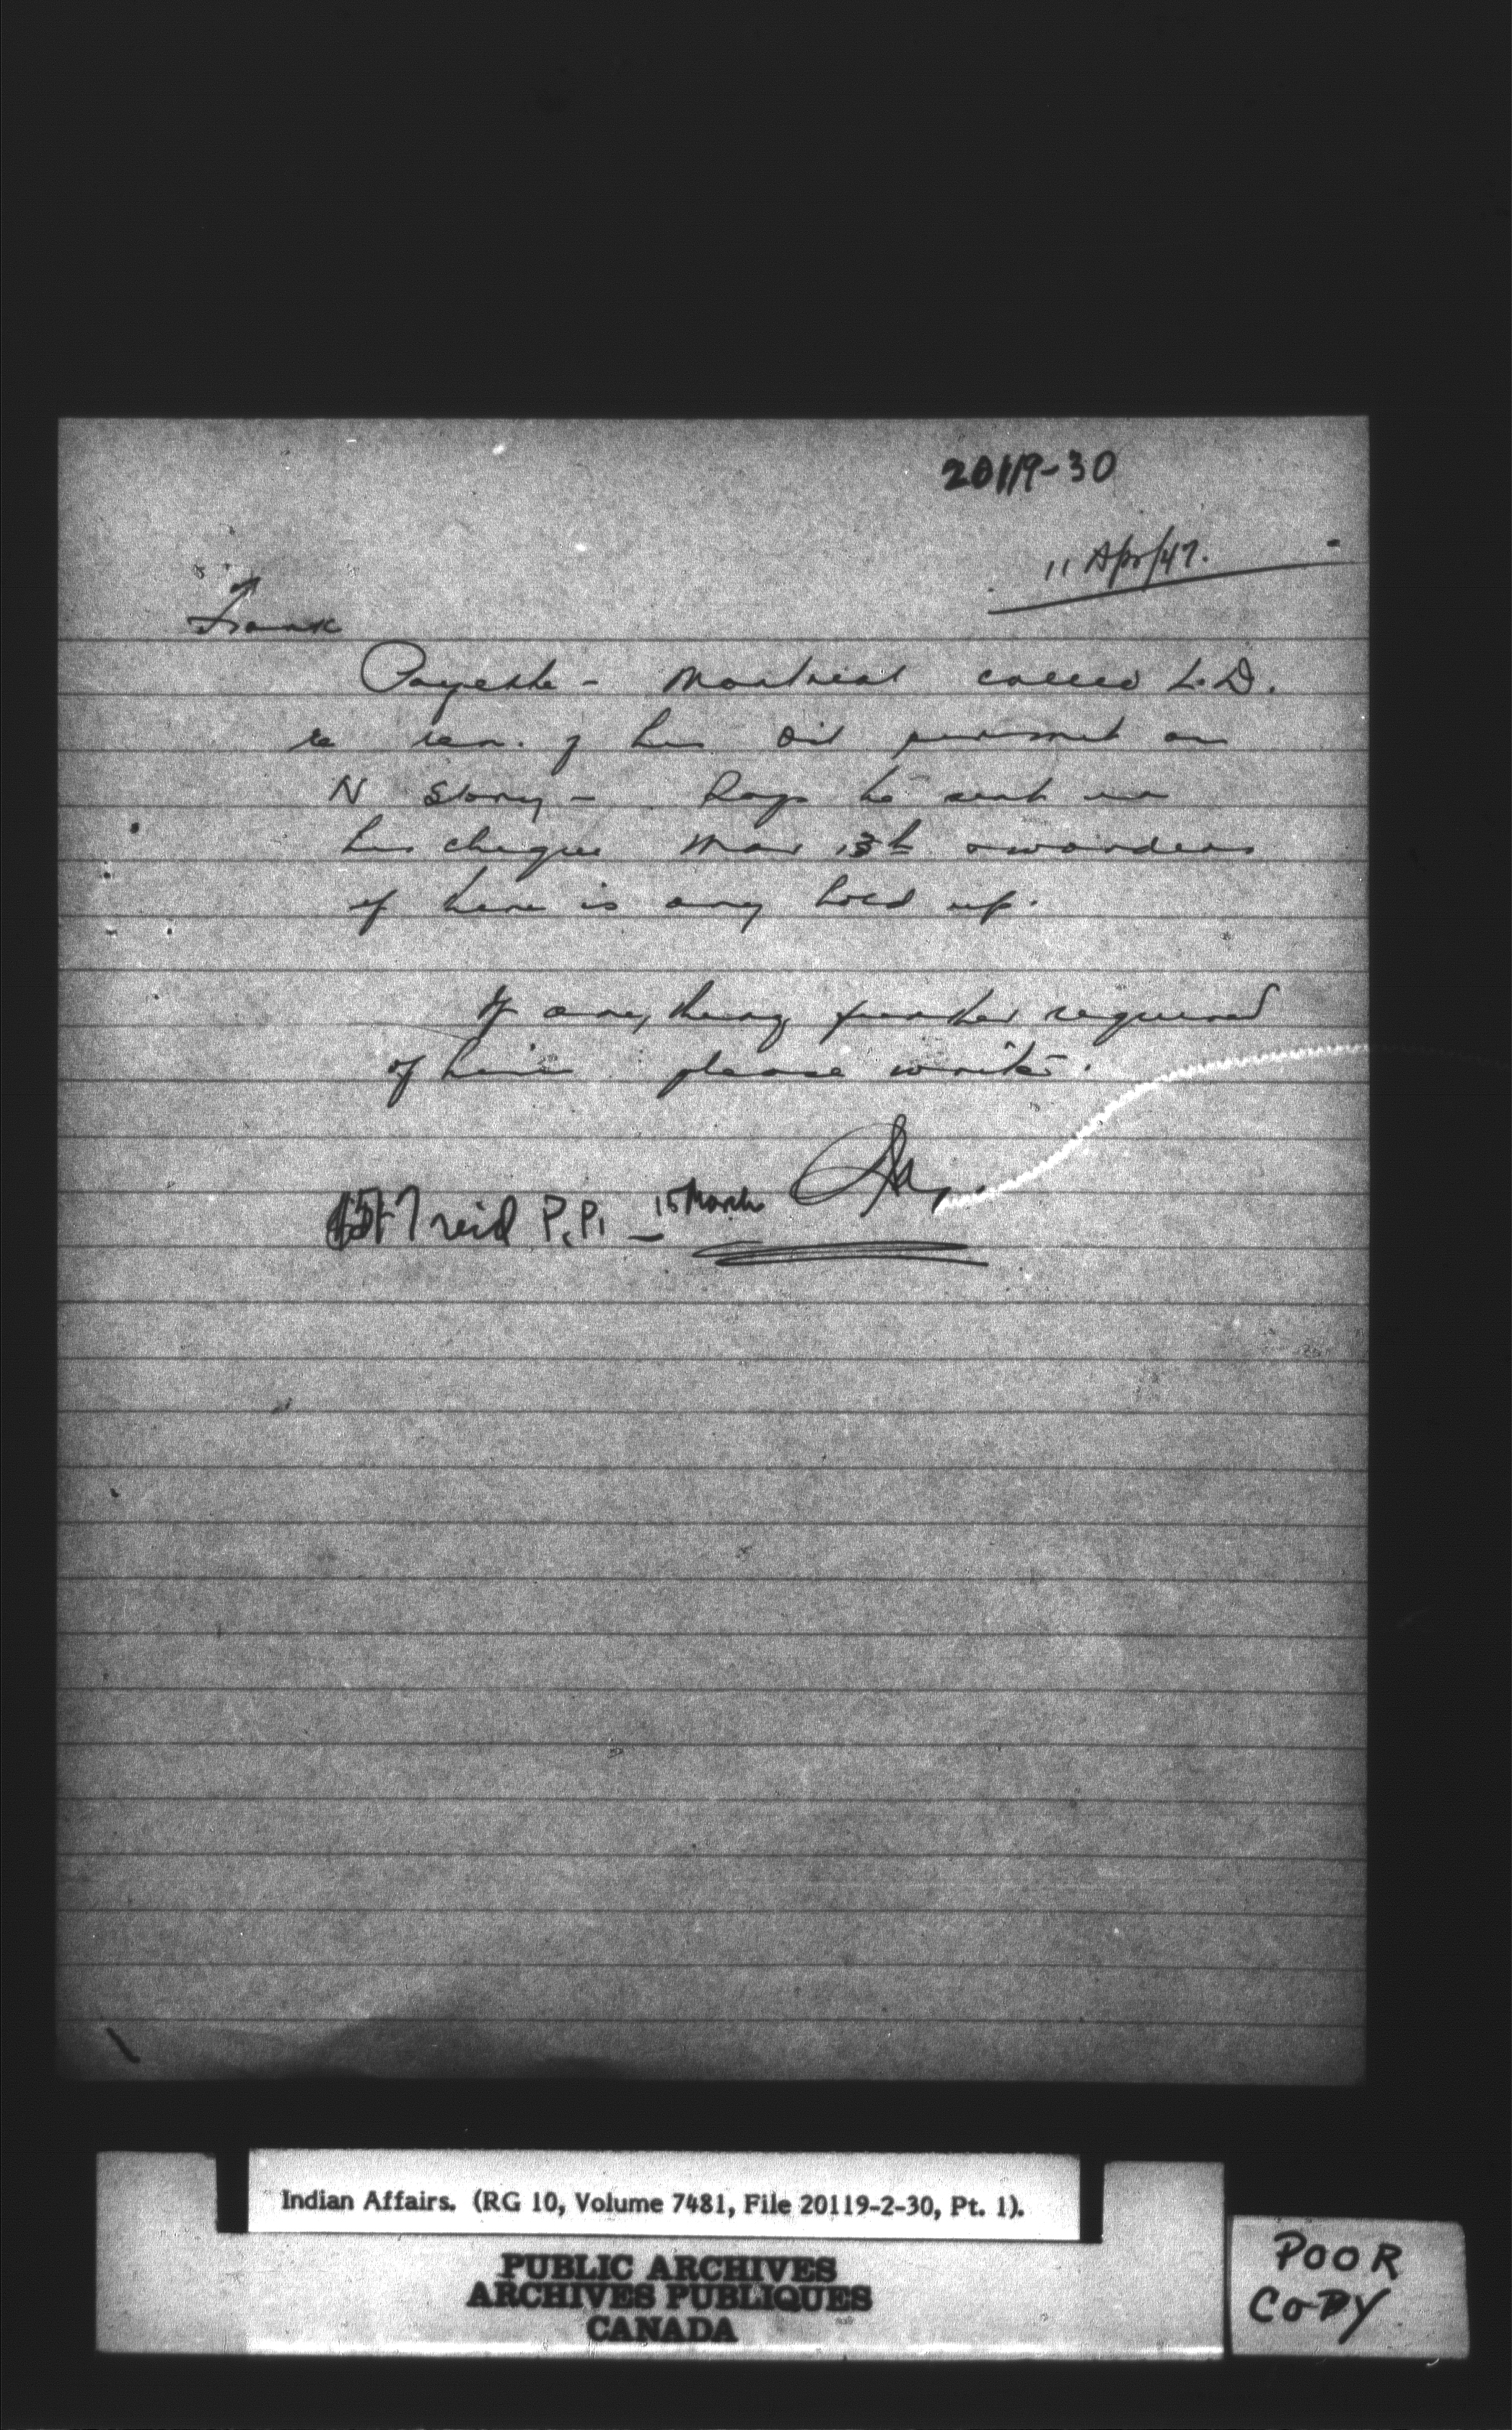 20119-30
11 Apr/47.
Frank
Payette - Montreal called L.D.
re ren. of his Oil permit on
N Stony - Says he sent in
his cheque Mar 13th & wonders
if there is any hold up.
If anything further required
of him please write.
recd P.P. - 15 March
Indian Affairs. (RG 10, Volume 7481, File 20119-2-30, Pt. 1).
PUBLIC ARCHIVES
ARCHIVES PUBLIQUES
CANADA
POOR
COPY